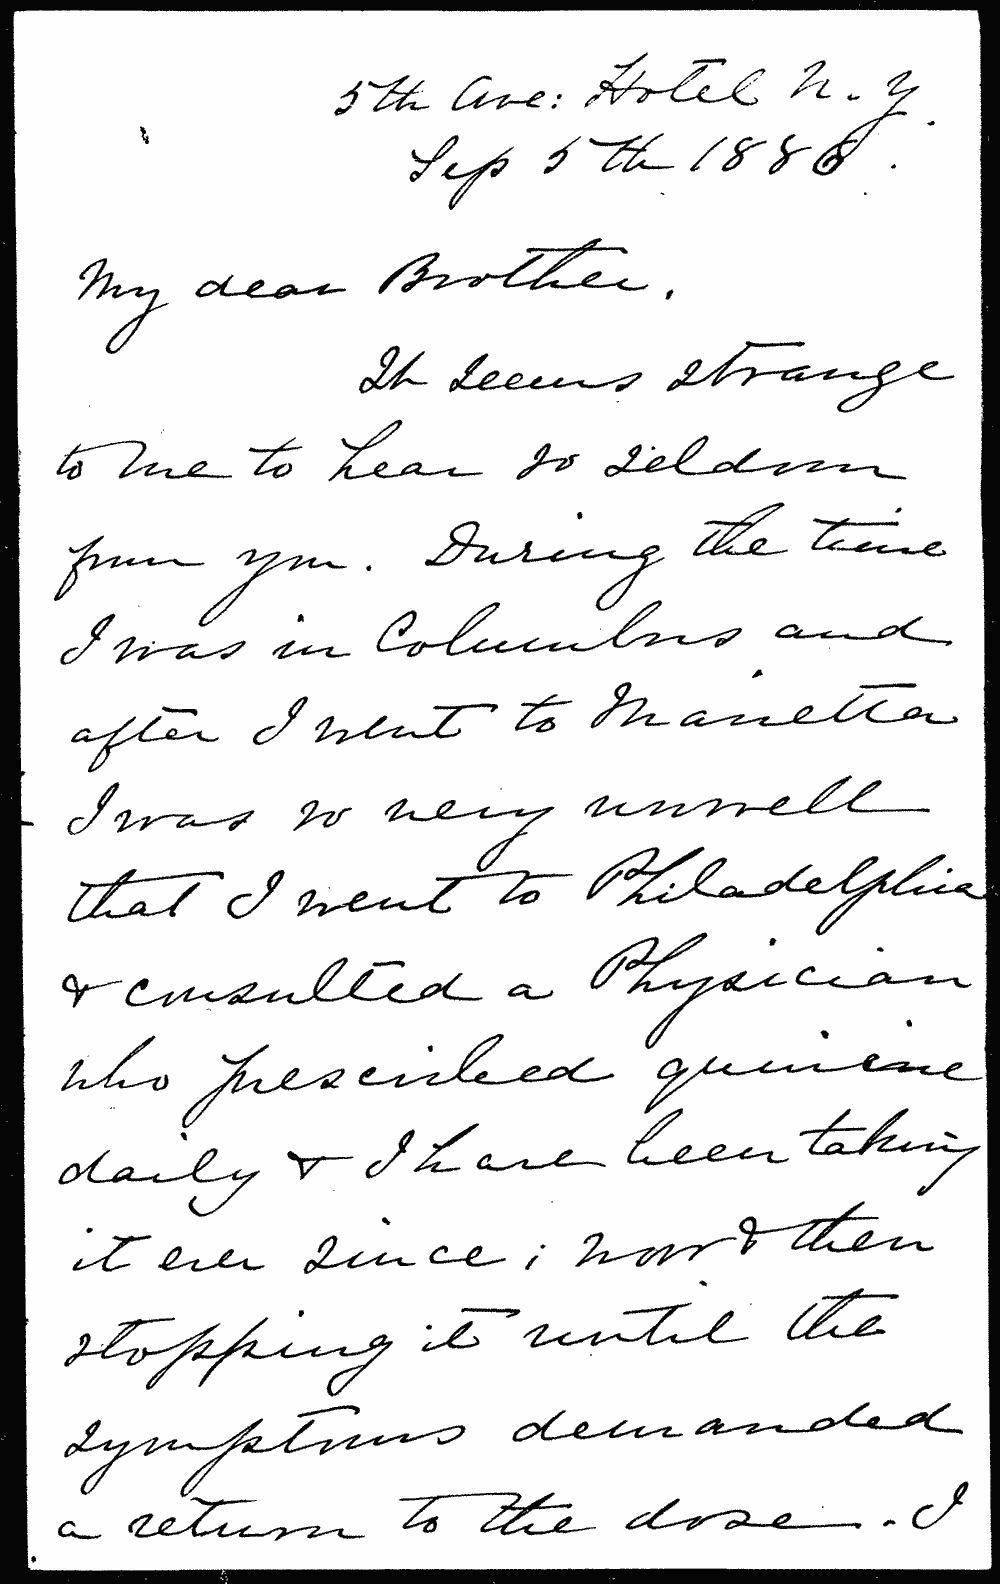 5th Ave: Hotel N. Y.
Sep 5th 1886.
My dear Brother.
It seems strange
to me to hear so seldom
from you. During the time
I was in Columbus and
after I went to Marietta
I was so very unwell
that I went to Philadelphia
& consulted a Physician
who prescribed quinine
daily & I have been taking
it ever since; now & then
stopping it until the
symptoms demanded
a return to the dose. I